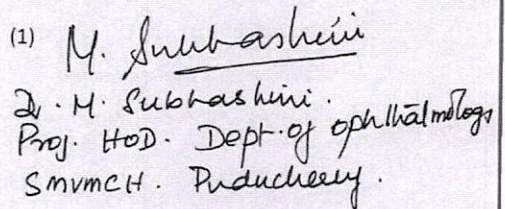 (1) M. Subhashini
Dr. M. Subhashini.
Prof. HOD. Dept. of ophthalmology
SMVMCH. Puducherry.